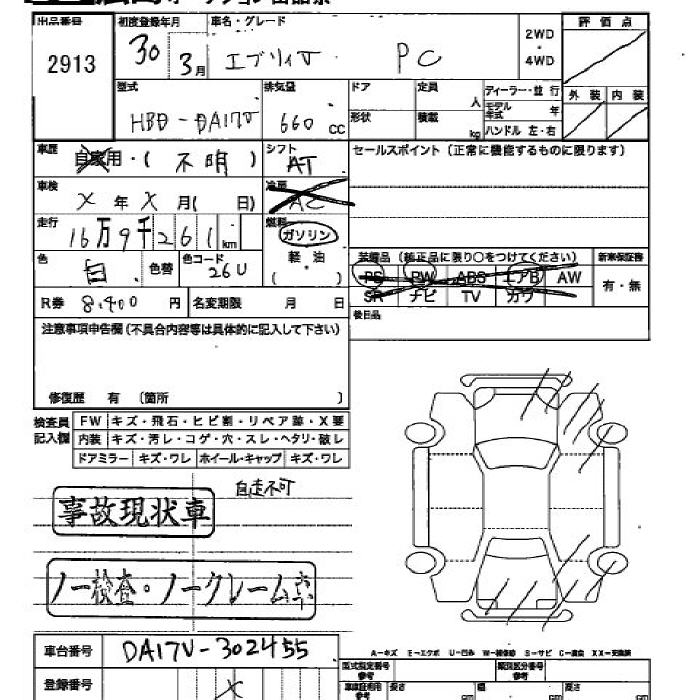 出品番号 初度登録年月 車名・グレード 2WD・4WD 評価点
2913 30 3月 エブリィV PC
型式 排気量 ドア 定員 人 ディーラー・並行 外装 内装
HBD-DA17V 660 CC 形状 積載 kg モデル年式 年
ハンドル 左・右
車歴 自家用・(不明) シフト AT セールスポイント(正常に機能するものに限ります)
車検 X年X月(日) 冷房 AC
走行 16万9千261km 燃料 ガソリン
軽油
( )
色 白 色替 色コード 26U 装備品(純正品に限り○をつけてください) 新車保証書
PS PW ABS エアB AW 有・無
SR ナビ TV カワ
R券 8,400円 名変期限 月 日
後日品
注意事項申告欄(不具合内容等は具体的に記入して下さい)
修復歴 有 (箇所 )
検査員記入欄 FW キズ・飛石・ヒビ割・リペア跡・X要
内装 キズ・汚レ・コゲ・穴・スレ・ヘタリ・破レ
ドアミラー キズ・ワレ ホイール・キャップ キズ・ワレ
自走不可
事故現状車
ノー検査・ノークレーム車
車台番号 DA17V-302455
登録番号 X
A-キズ E-エクボ U-凹み W-補修跡 S-サビ C-腐食 XX-交換済
型式指定番号 参考 類別区分番号 参考
長さ cm 幅 cm 高さ cm